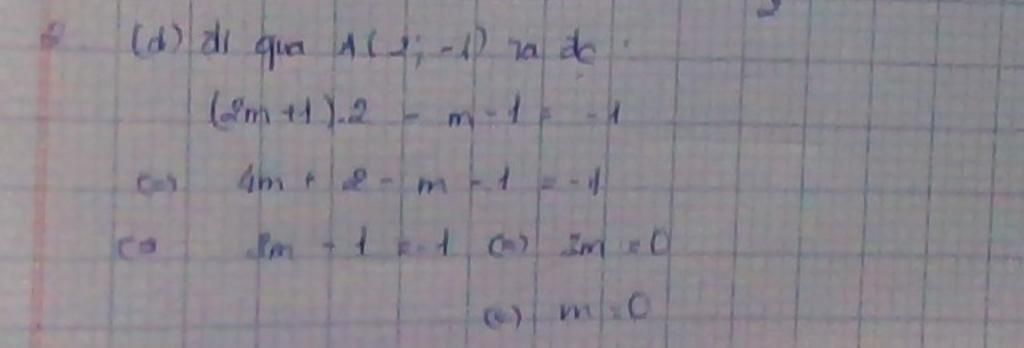 (d) đi qua A(2; -1) ta đc
(2m+1).2 - m - 1 = -1
<=> 4m + 2 - m - 1 = -1
<=> 3m + 1 = -1 <=> 3m = 0
<=> m = 0